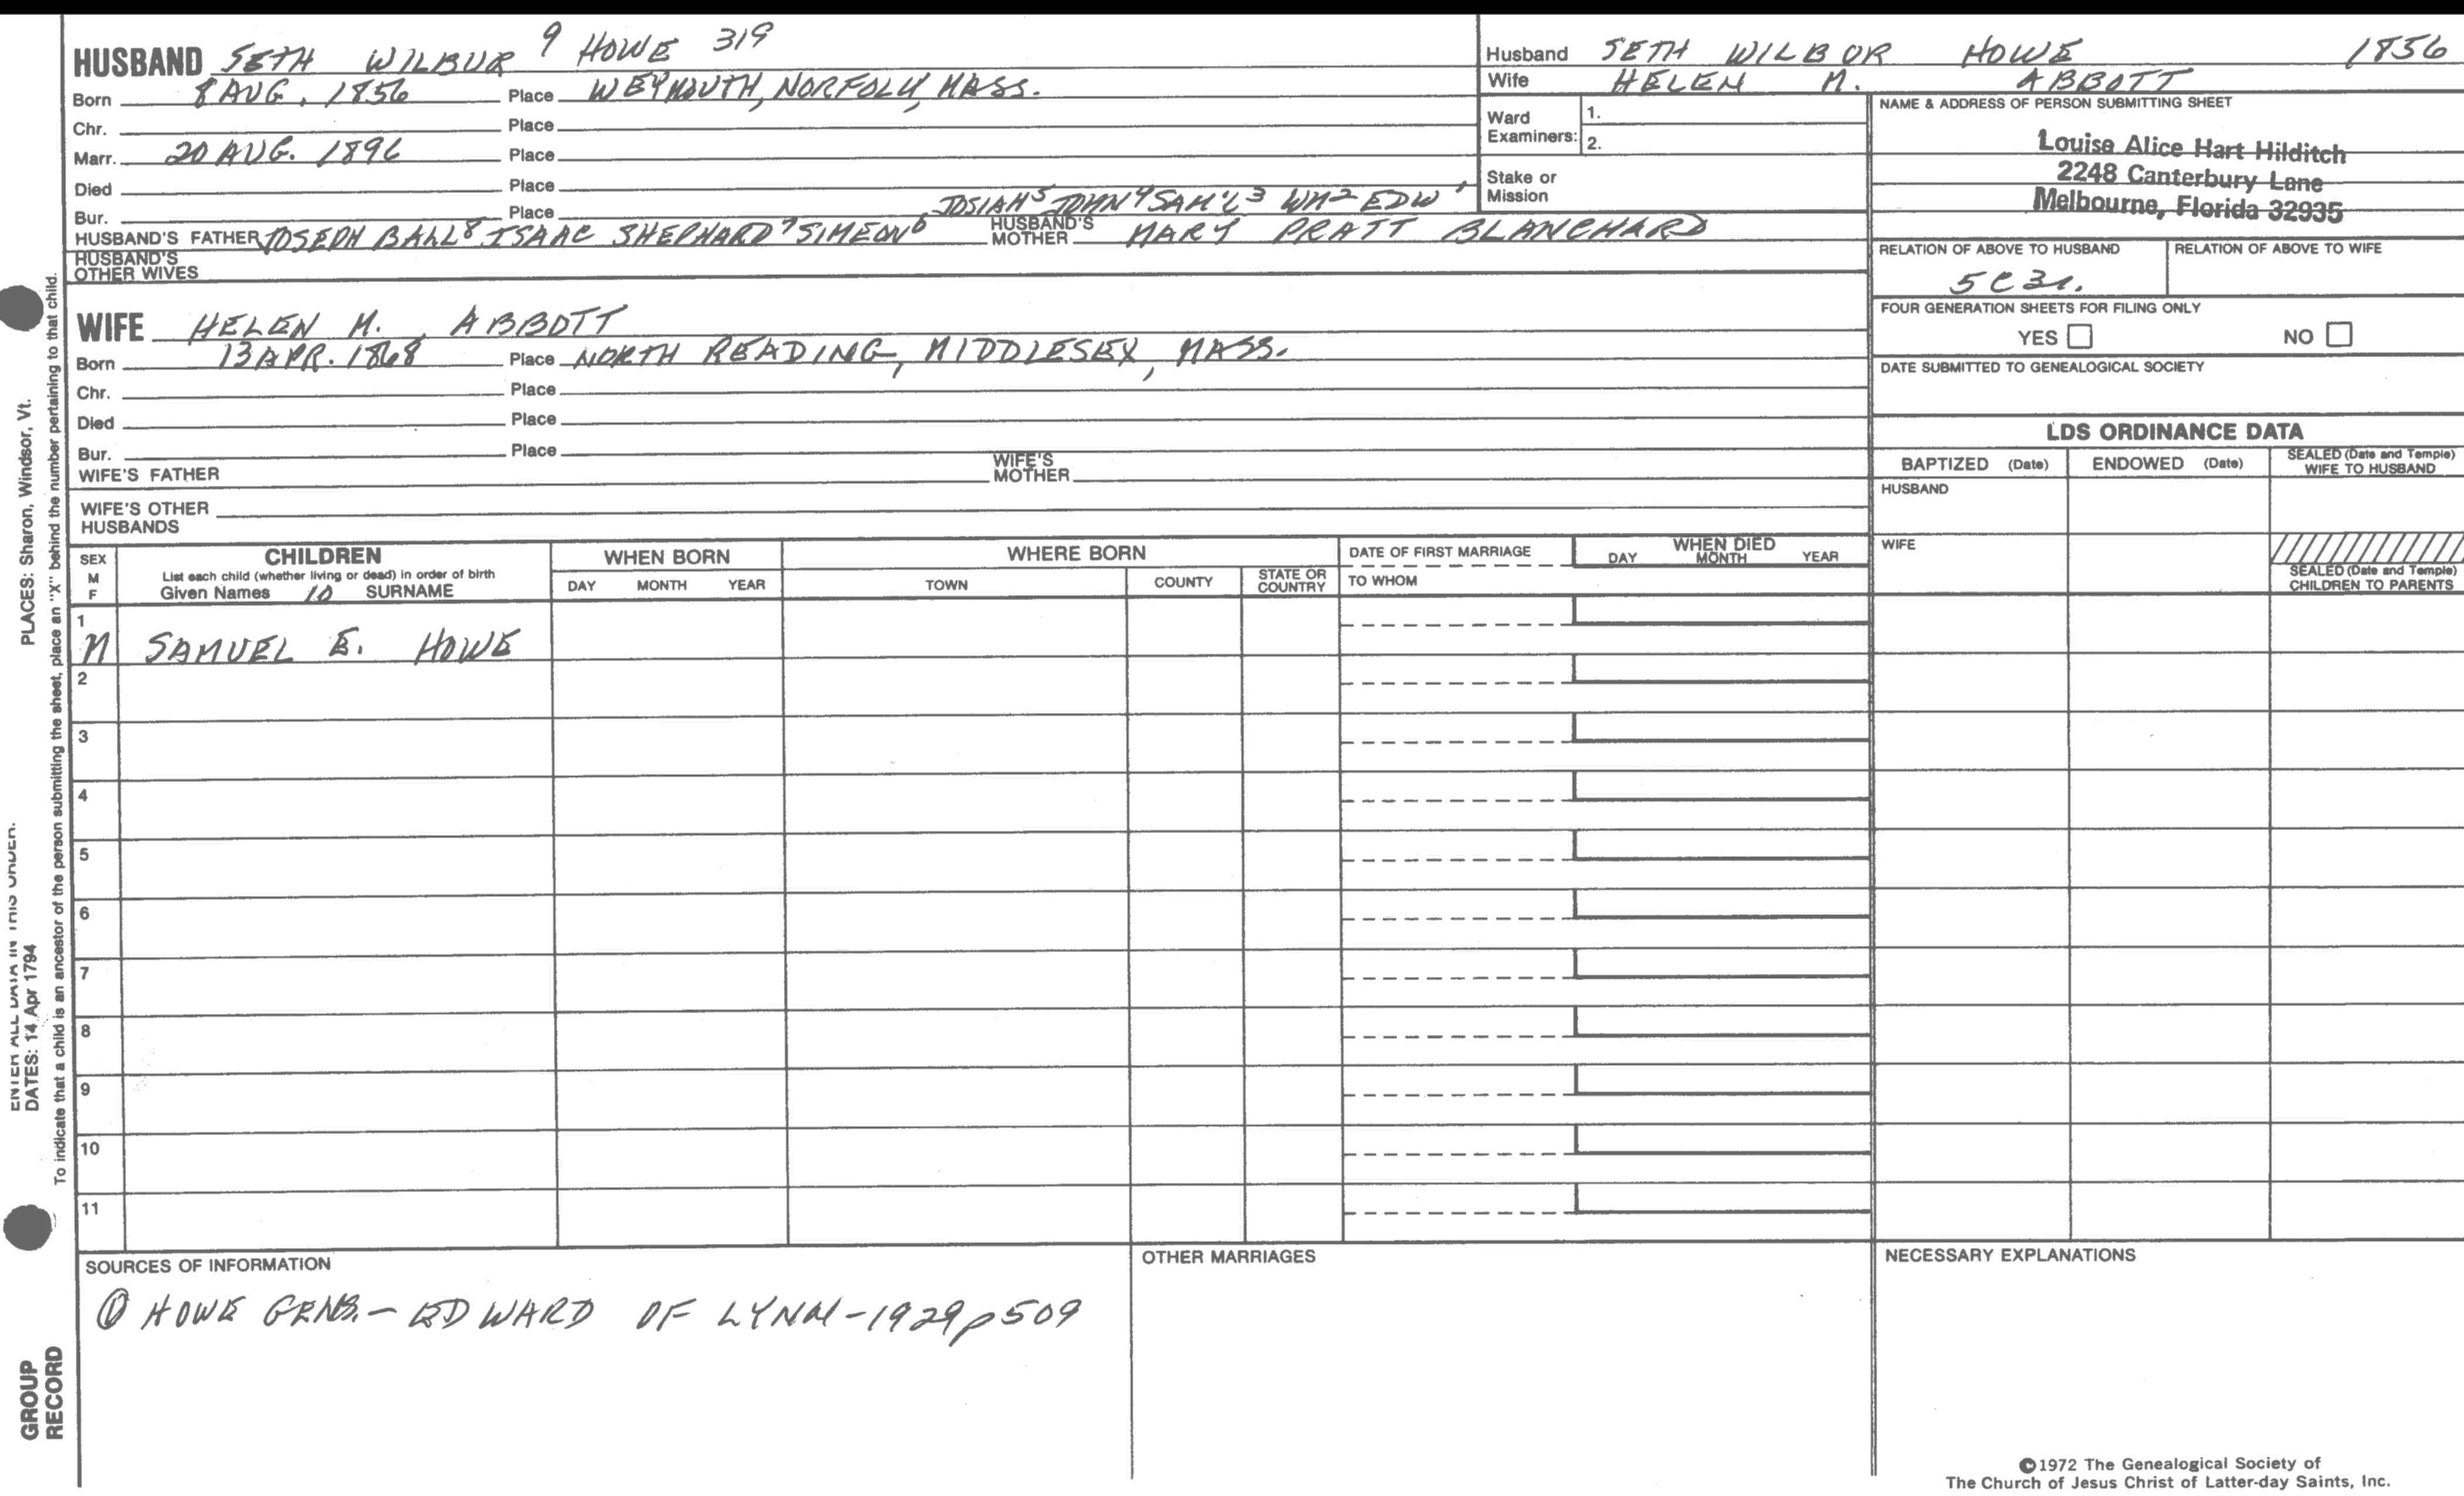 HUSBAND SETH WILBUR 9 HOWE 319
Born 8 AUG. 1856 Place WEYMOUTH, NORFOLK, MASS.
Chr. Place
Marr. 20 AUG. 1896 Place
Died Place
Bur. Place
JOSIAH5 JOHN4 SAM'L3 WM2 EDW'
HUSBAND'S FATHER JOSEPH BALL8 ISAAC SHEPHARD7 SIMEON6 HUSBAND'S MOTHER MARY PRATT BLANCHARD
HUSBAND'S OTHER WIVES
WIFE HELEN M. ABBOTT
Born 13 APR. 1868 Place NORTH READING, MIDDLESEX, MASS.
Chr. Place
Died Place
Bur. Place
WIFE'S FATHER WIFE'S MOTHER
WIFE'S OTHER HUSBANDS
Husband SETH WILBUR HOWE 1856
Wife HELEN M. ABBOTT
Ward Examiners: 1.
2.
Stake or Mission
NAME & ADDRESS OF PERSON SUBMITTING SHEET
Louise Alice Hart Hilditch
2248 Canterbury Lane
Melbourne, Florida 32935
RELATION OF ABOVE TO HUSBAND RELATION OF ABOVE TO WIFE
5C3r.
FOUR GENERATION SHEETS FOR FILING ONLY
YES NO
DATE SUBMITTED TO GENEALOGICAL SOCIETY
LDS ORDINANCE DATA
BAPTIZED (Date) ENDOWED (Date) SEALED (Date and Temple) WIFE TO HUSBAND
HUSBAND
WIFE
SEALED (Date and Temple)
CHILDREN TO PARENTS
SEX M F
CHILDREN
List each child (whether living or dead) in order of birth
Given Names 10 SURNAME
WHEN BORN
DAY MONTH YEAR
WHERE BORN
TOWN COUNTY STATE OR COUNTRY
DATE OF FIRST MARRIAGE
TO WHOM
WHEN DIED
DAY MONTH YEAR
1
M SAMUEL E. HOWE
2
3
4
5
6
7
8
9
10
11
SOURCES OF INFORMATION
① HOWE GENS. - EDWARD OF LYNN - 1929 p 509
OTHER MARRIAGES
NECESSARY EXPLANATIONS
©1972 The Genealogical Society of
The Church of Jesus Christ of Latter-day Saints, Inc.
ENTER ALL DATA IN THIS ORDER.
DATES: 14 Apr 1794
PLACES: Sharon, Windsor, Vt.
To indicate that a child is an ancestor of the person submitting the sheet, place an "X" behind the number pertaining to that child.
GROUP
RECORD